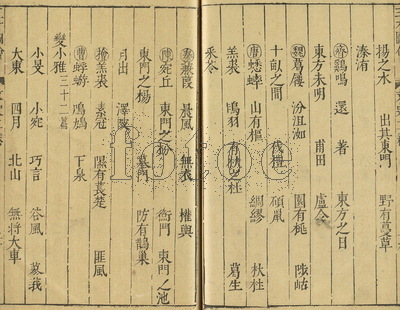 揚之水 出其東門 野有蔓草
溱洧
齊 鷄鳴 還 著 東方之日
東方未明 甫田 盧令
魏 葛屨 汾沮洳 園有桃 陟岵
十畝之間 伐檀 碩鼠
唐 蟋蟀 山有樞 綢繆 杕杜
羔裘 鴇羽 有杕之杜 葛生
采苓
秦 蒹葭 晨風 無衣 權輿
陳 宛丘 東門之枌 衡門 東門之池
東門之楊 墓門 防有鵲巢
月出 澤陂
檜 羔裘 素冠 隰有萇楚 匪風
曹 蜉蝣 鳲鳩 下泉
變小雅三十二篇
小旻 小宛 巧言 谷風 蓼莪
大東 四月 北山 無將大車
fotoe